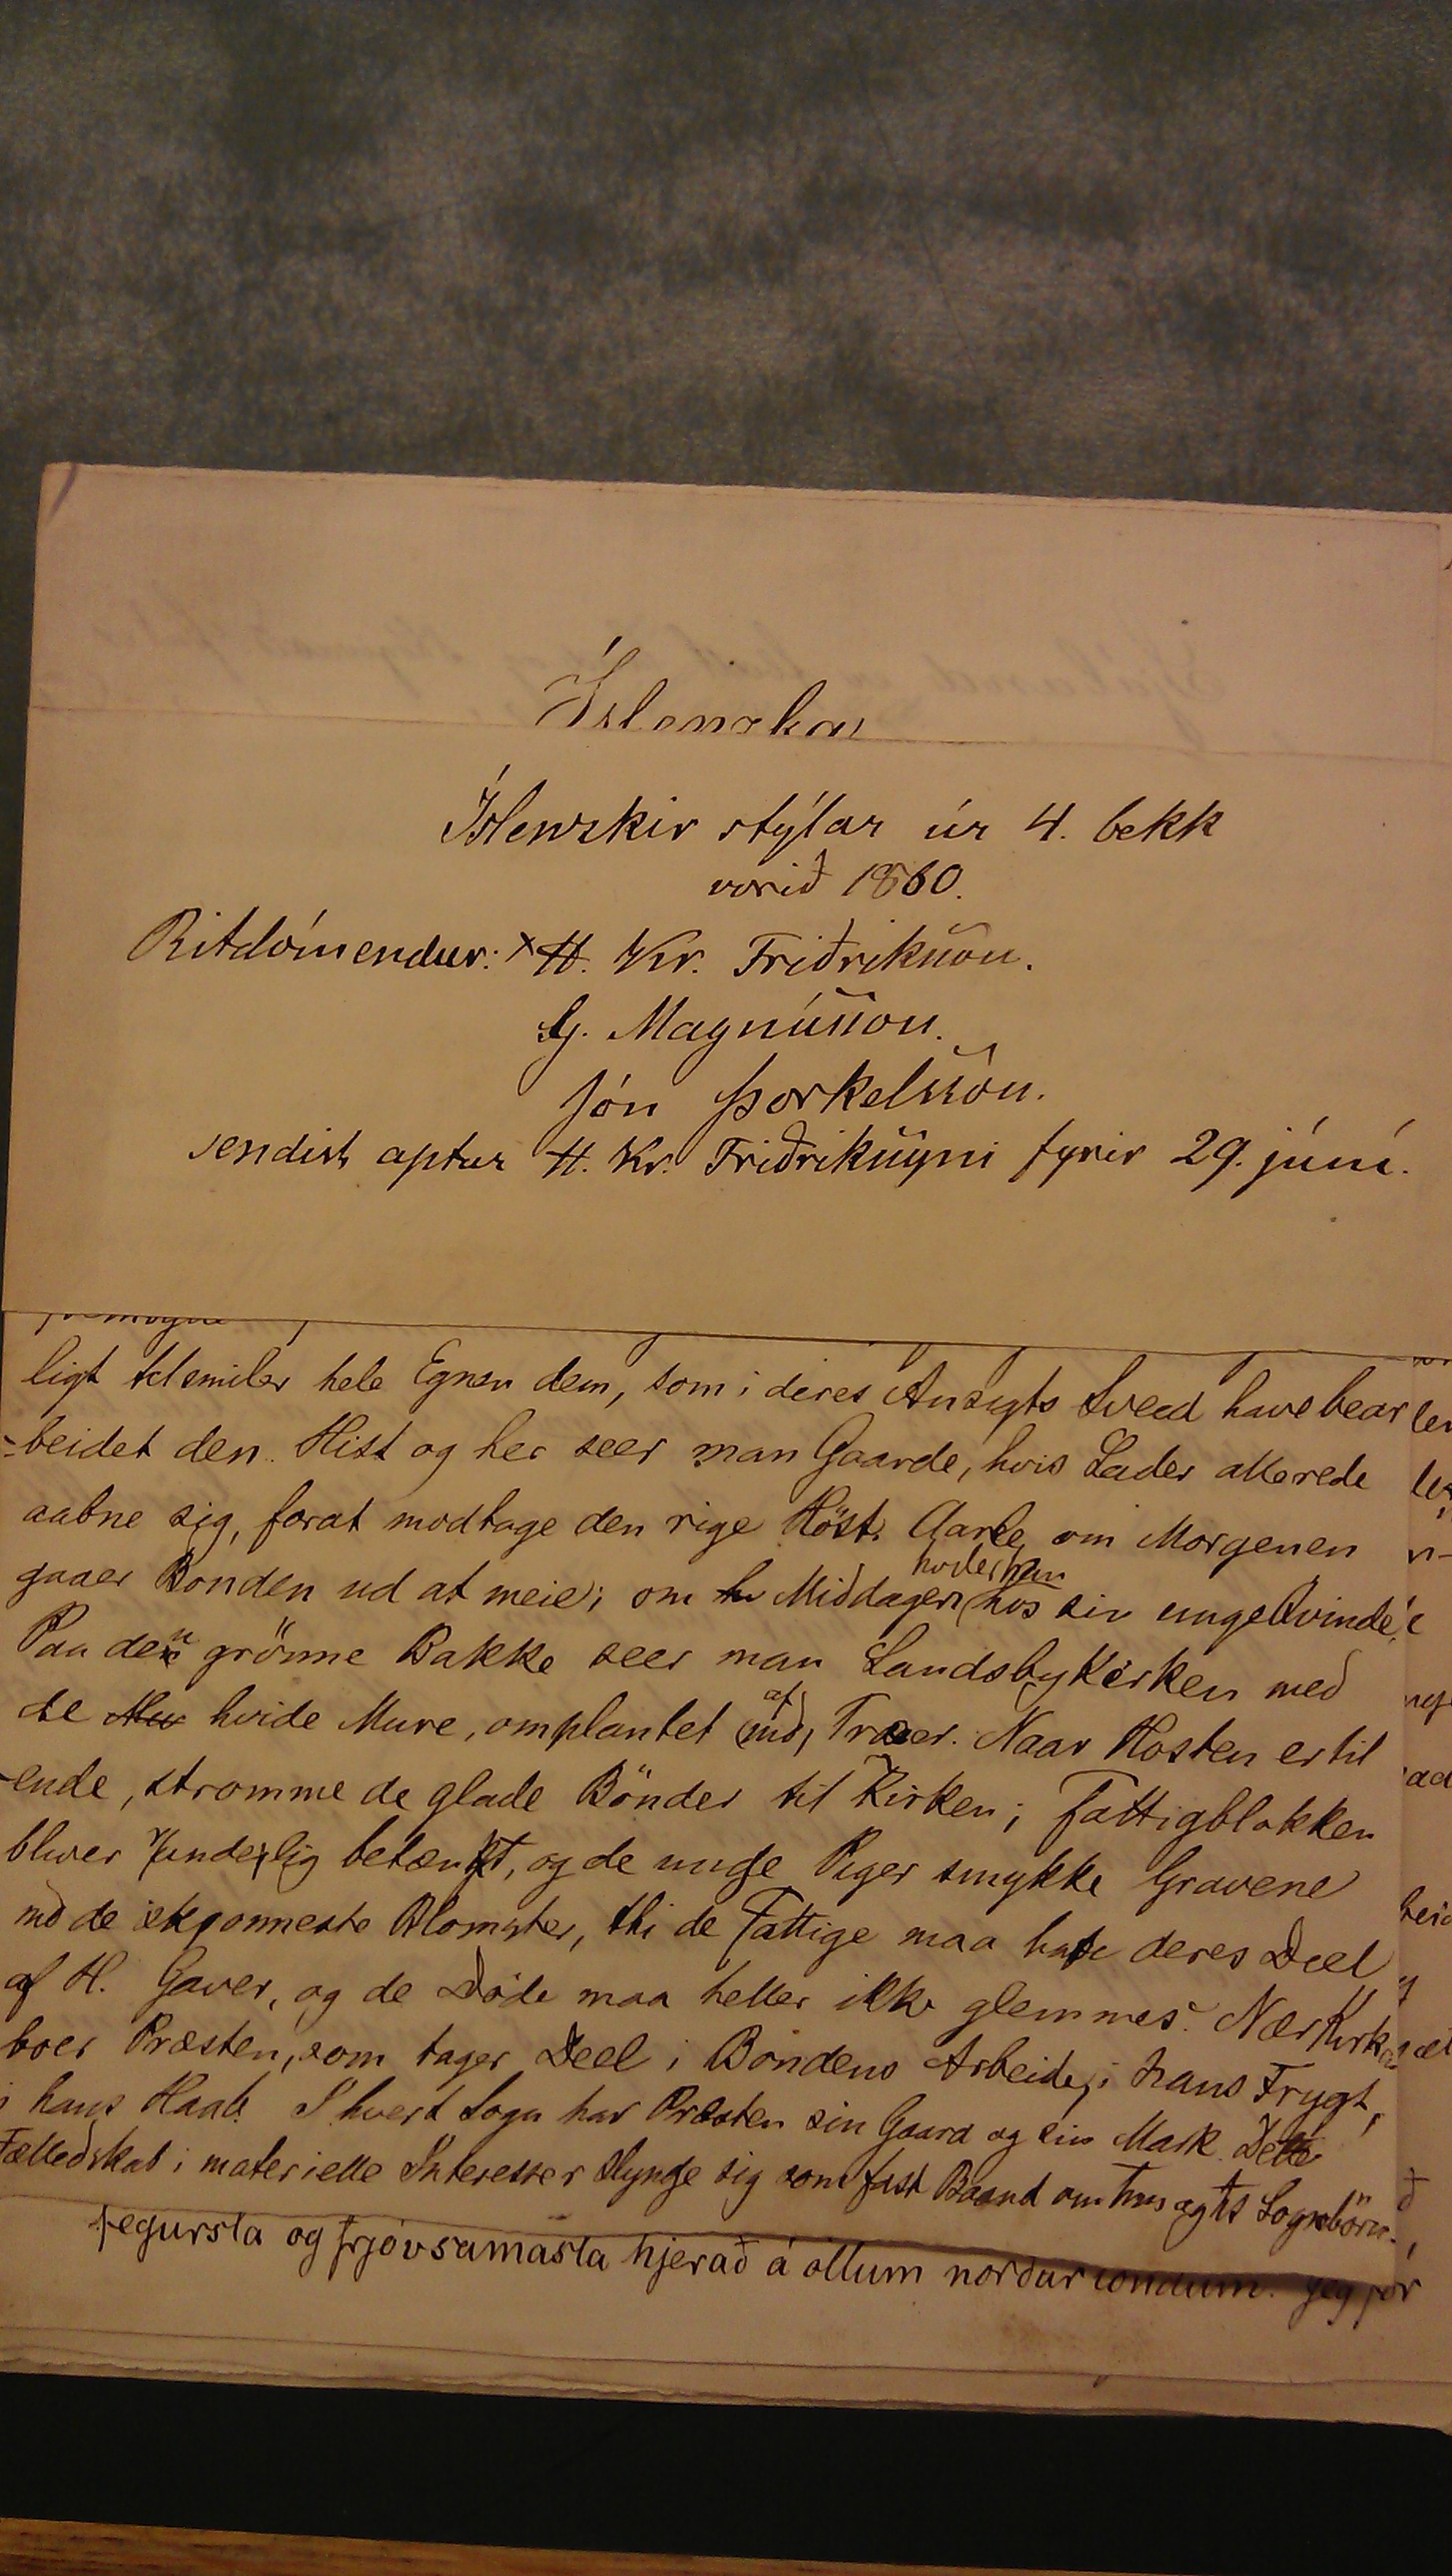 Íslenzka
Íslenzkir stýlar úr 4. bekk
vorið 1860.
Ritdómendur: × H. Kr. Friðriksson.
G. Magnússon.
Jón Þorkelsson.
sendist aptur H. Kr. Friðrikssyni fyrir 29. júní.
ligt tilsmiler hele Egnen dem, som i deres Ansigts Sveed have bear
-beidet den. Hist og her seer man Gaarde, hvis Lader allerede
aabne sig, forat modtage den rige Höst. Aarle om Morgenen
gaaer Bonden ud at meie; om Middagen hviler han hos sin unge Qvinde.
Paa den grönne Bakke seer man Landsbykirken med
de hvide Mure, omplantet af Træer. Naar Hosten er til
ende, stromme de glade Bönder til Kirken; Fattigblokken
bliver betænkt, og de unge Piger smykke Gravene
md de skjonneste Blomster, thi de Fattige maa have deres Deel
af H. Gaver, og de Döde maa heller ikke glemmes. Nær Kirken
boer Præsten, som tager Deel i Bondens Arbeide, i hans Frygt,
i hans Haab. I hvert Sogn har Præsten sin Gaard og sin Mark. Dette
Fælledskab i materielle Interesser slynge sig som fast Baand om Sognebörn.
fegursta og frjóvsamasta hjerað á öllum norðurlöndum. Jeg fór